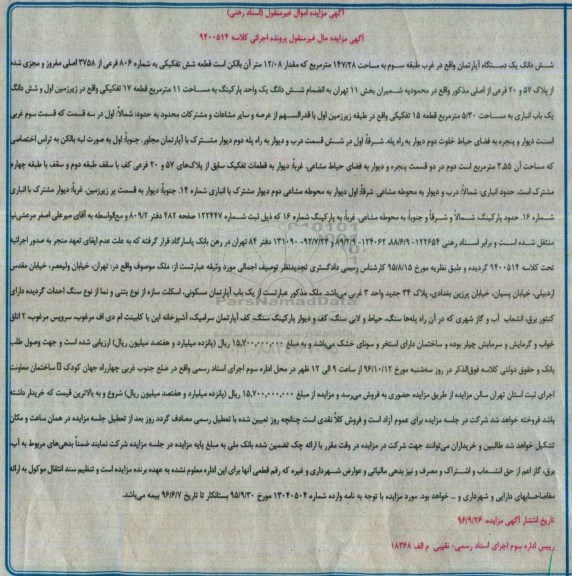 آگهی مزایده اموال غیرمنقول (اسناد رهنی)
آگهی مزایده مال غیرمنقول پرونده اجرائی کلاسه ۹۴۰۰۵۱۴
شش دانگ یک دستگاه آپارتمان واقع در غرب طبقه سوم به مساحت ۱۴۷/۲۸ مترمربع که مقدار ۱۲/۰۸ متر آن بالکن است قطعه شش تفکیکی به شماره ۸۰۶ فرعی از ۳۷۵۸ اصلی مفروز و مجزی شده
از پلاک ۵۷ و ۲۰ فرعی از اصلی مذکور واقع در محدودیه شمیران بخش ۱۱ تهران به انضمام شش دانگ یک واحد پارکینگ به مساحت ۱۱ مترمربع قطعه ۱۷ تفکیکی واقع در زیرزمین اول و شش دانگ
یک باب انباری به مساحت ۵/۳۰ مترمربع قطعه ۱۵ تفکیکی واقع در طبقه زیرزمین اول با قدرالسهم از عرصه و سایر مشاعات و مشترکات محدود به حدود: شمالاً: اول در سه قسمت که قسمت سوم غربی
است دیوار و پنجره به فضای حیاط خلوت دوم دیوار به راه پله. شرقاً: اول در شش قسمت درب و دیوار به راه پله دوم دیوار مشترک با آپارتمان مجاور. جنوباً: اول به صورت لبه بالکن به تراس اختصاصی
که مساحت آن ۳.۵۵ مترمربع است دوم در دو قسمت پنجره و دیوار به فضای حیاط مشاعی. غرباً: دیوار به قطعات تفکیک سابق از پلاک‌های ۵۷ و ۲۰ فرعی کف با سقف طبقه دوم و سقف با طبقه چهارم
مشترک است. حدود انباری: شمالاً: درب و دیوار به محوطه مشاعی. شرقاً: اول دیوار به محوطه مشاعی دوم دیوار مشترک با انباری شماره ۱۴. جنوباً: دیوار به قسمت پر زیرزمین. غرباً: دیوار مشترک با انباری
شماره ۱۶. حدود پارکینگ: شمالاً و شرقاً و جنوباً: به محوطه مشاعی. غرباً: به پارکینگ شماره ۱۶ که ذیل ثبت شماره ۱۲۲۴۴۷ صفحه ۴۸۲ دفتر ۸۰۹/۲ و مع‌الواسطه به آقای میرعلی اصغر مرعشی‌نیا
منتقل شده است و برابر اسناد رهنی ۱۲۲۶۵۴- ۸۸/۶/۹ ۱۲۴۰۶۲- ۸۹/۲/۹ و ۹۲/۷/۲۴- ۱۳۱۰۹۰ دفتر ۸۴ تهران در رهن بانک پاسارگاد قرار گرفته که به علت عدم ایفای تعهد منجر به صدور اجرائیه
تحت کلاسه ۹۴۰۰۵۱۴ گردیده و طبق نظریه مورخ ۹۵/۸/۱۵ کارشناس رسمی دادگستری تجدیدنظر توصیف اجمالی مورد وثیقه عبارتست از: ملک موصوف واقع در: تهران، خیابان ولیعصر، خیابان مقدس
اردبیلی، خیابان پسیان، خیابان پرزین بغدادی، پلاک ۳۴ جدید واحد ۳ غربی می‌باشد. ملک مذکور عبارتست از یک باب آپارتمان مسکونی، اسکلت سازه از نوع بتنی و نما از نوع سنگ احداث گردیده دارای
کنتور برق، انشعاب آب و گاز شهری که در آن راه پله‌ها سنگ، حیاط و لابی سنگ، کف و دیوار پارکینگ سنگ، کف آپارتمان سرامیک، آشپزخانه اپن با کابینت ام دی اف مرغوب، سرویس مرغوب، ۲ اتاق
خواب و گرمایش و سرمایش چیلر بوده و ساختمان دارای استخر و سونای خشک می‌باشد و به مبلغ ۱۵,۷۰۰,۰۰۰,۰۰۰ ریال (پانزده میلیارد و هفتصد میلیون ریال) ارزیابی شده است و جهت وصول طلب
بانک و حقوق دولتی کلاسه فوق‌الذکر در روز سه‌شنبه مورخ ۹۶/۱۰/۱۲ از ساعت ۹ الی ۱۲ ظهر در محل اداره سوم اجرای اسناد رسمی واقع در ضلع جنوب غربی چهارراه جهان کودک ▯ ساختمان معاونت
اجرای ثبت استان تهران سالن مزایده از طریق مزایده حضوری به فروش می‌رسد و مزایده از مبلغ ۱۵,۷۰۰,۰۰۰,۰۰۰ ریال (پانزده میلیارد و هفتصد میلیون ریال) شروع و به بالاترین قیمت که خریدار داشته
باشد فروخته خواهد شد شرکت در جلسه مزایده برای عموم آزاد است و فروش کلاً نقدی است چنانچه روز تعیین شده با تعطیل رسمی مصادف گردد روز بعد از تعطیل جلسه مزایده در همان ساعت و مکان
تشکیل خواهد شد طالبین و خریداران می‌توانند جهت شرکت در مزایده در وقت مقرر با ارائه چک تضمین شده بانک ملی به مبلغ پایه مزایده در جلسه مزایده شرکت نمایند ضمناً بدهی‌های مربوط به آب،
برق، گاز اعم از حق انشعاب و اشتراک و مصرف و نیز بدهی مالیاتی و عوارض شهرداری و غیره که رقم قطعی آنها برای این اداره معلوم نشده به عهده برنده مزایده است و تنظیم سند انتقال موکول به ارائه
مفاصاحسابهای دارایی و شهرداری و ... خواهد بود. مورد مزایده با توجه به نامه وارده شماره ۱۳۰۴۰۵۰۴ مورخ ۹۵/۹/۳۰ بستانکار تا تاریخ ۹۶/۶/۷ بیمه می‌باشد.
تاریخ انتشار آگهی مزایده: ۹۶/۹/۲۶
رییس اداره سوم اجرای اسناد رسمی- نقیبی م الف ۱۸۳۶۸
ParsNamadData